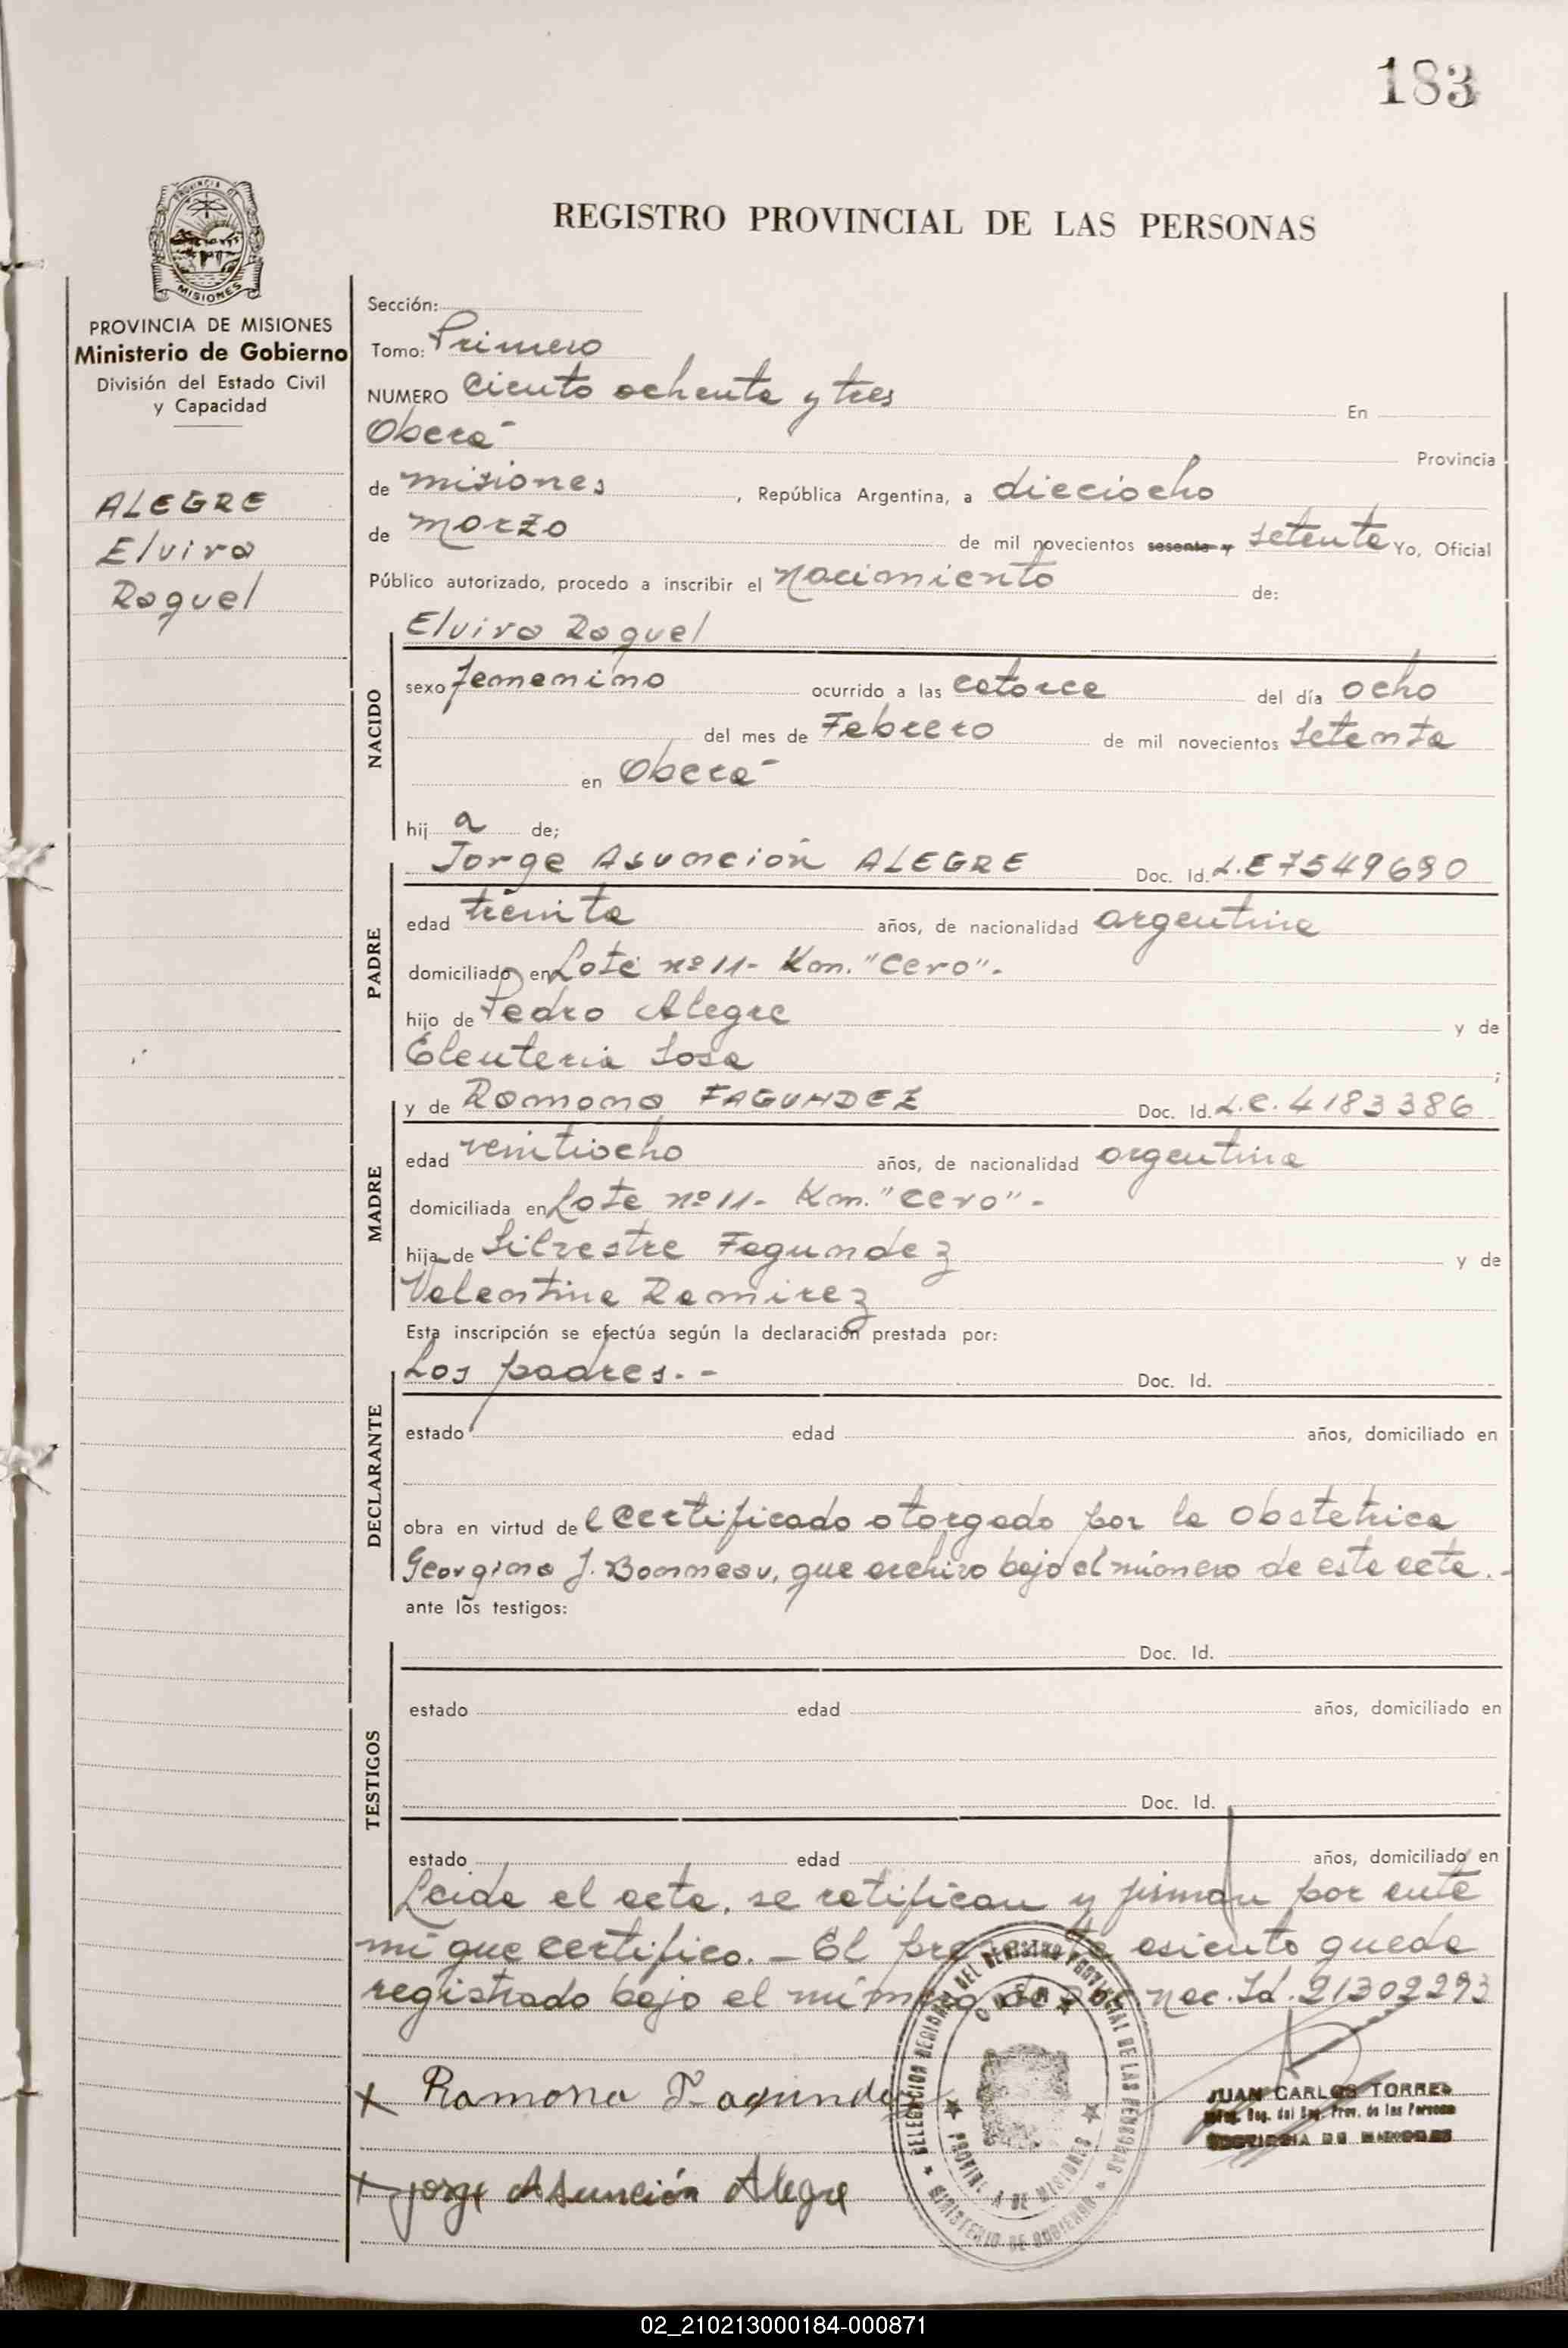 183
REGISTRO PROVINCIAL DE LAS PERSONAS
PROVINCIA DE
MISIONES
PROVINCIA DE MISIONES
Ministerio de Gobierno
División del Estado Civil
y Capacidad
ALEGRE
Elvira
Raquel
Sección:
Tomo: Primero
NUMERO Ciento ochenta y tres En
Oberá Provincia
de misiones, República Argentina, a dieciocho
de marzo de mil novecientos sesenta y setenta Yo, Oficial
Público autorizado, procedo a inscribir el nacimiento de:
NACIDO
Elvira Raquel
sexo femenino ocurrido a las catorce del día ocho
del mes de Febrero de mil novecientos setenta
en Oberá
hij a de;
PADRE
Jorge Asunción ALEGRE Doc. Id. L.E 7549690
edad treinta años, de nacionalidad argentina
domiciliado en Lote nº 11- Km. "Cero".
hijo de Pedro Alegre y de
Eleuteria Sosa ;
MADRE
y de Ramona FAGUNDEZ Doc. Id. L.C. 4183386
edad veintiocho años, de nacionalidad argentina
domiciliada en Lote nº 11- Km. "Cero".-
hija de Silvestre Fagundez y de
Valentina Ramirez
Esta inscripción se efectúa según la declaración prestada por:
DECLARANTE
Los padres.- Doc. Id.
estado edad años, domiciliado en
obra en virtud de l certificado otorgado por la Obstetrica
Georgina J. Bonneau, que archivo bajo el número de este acta.-
ante los testigos:
TESTIGOS
Doc. Id.
estado edad años, domiciliado en
Doc. Id.
estado edad años, domiciliado en
Leida el acta, se ratifican y firman por ante
mi que certifico.- El presente asiento queda
registrado bajo el número de nac. Id. 21302293
Ramona Fagundez
Jorge Asunción Alegre
DELEGACION REGIONAL DEL REGISTRO PROVINCIAL DE LAS PERSONAS
OBERA
PROVINCIA DE MISIONES
MINISTERIO DE GOBIERNO
JUAN CARLOS TORRES
Reg. del Reg. Prov. de las Personas
PROVINCIA DE MISIONES
02_210213000184-000871